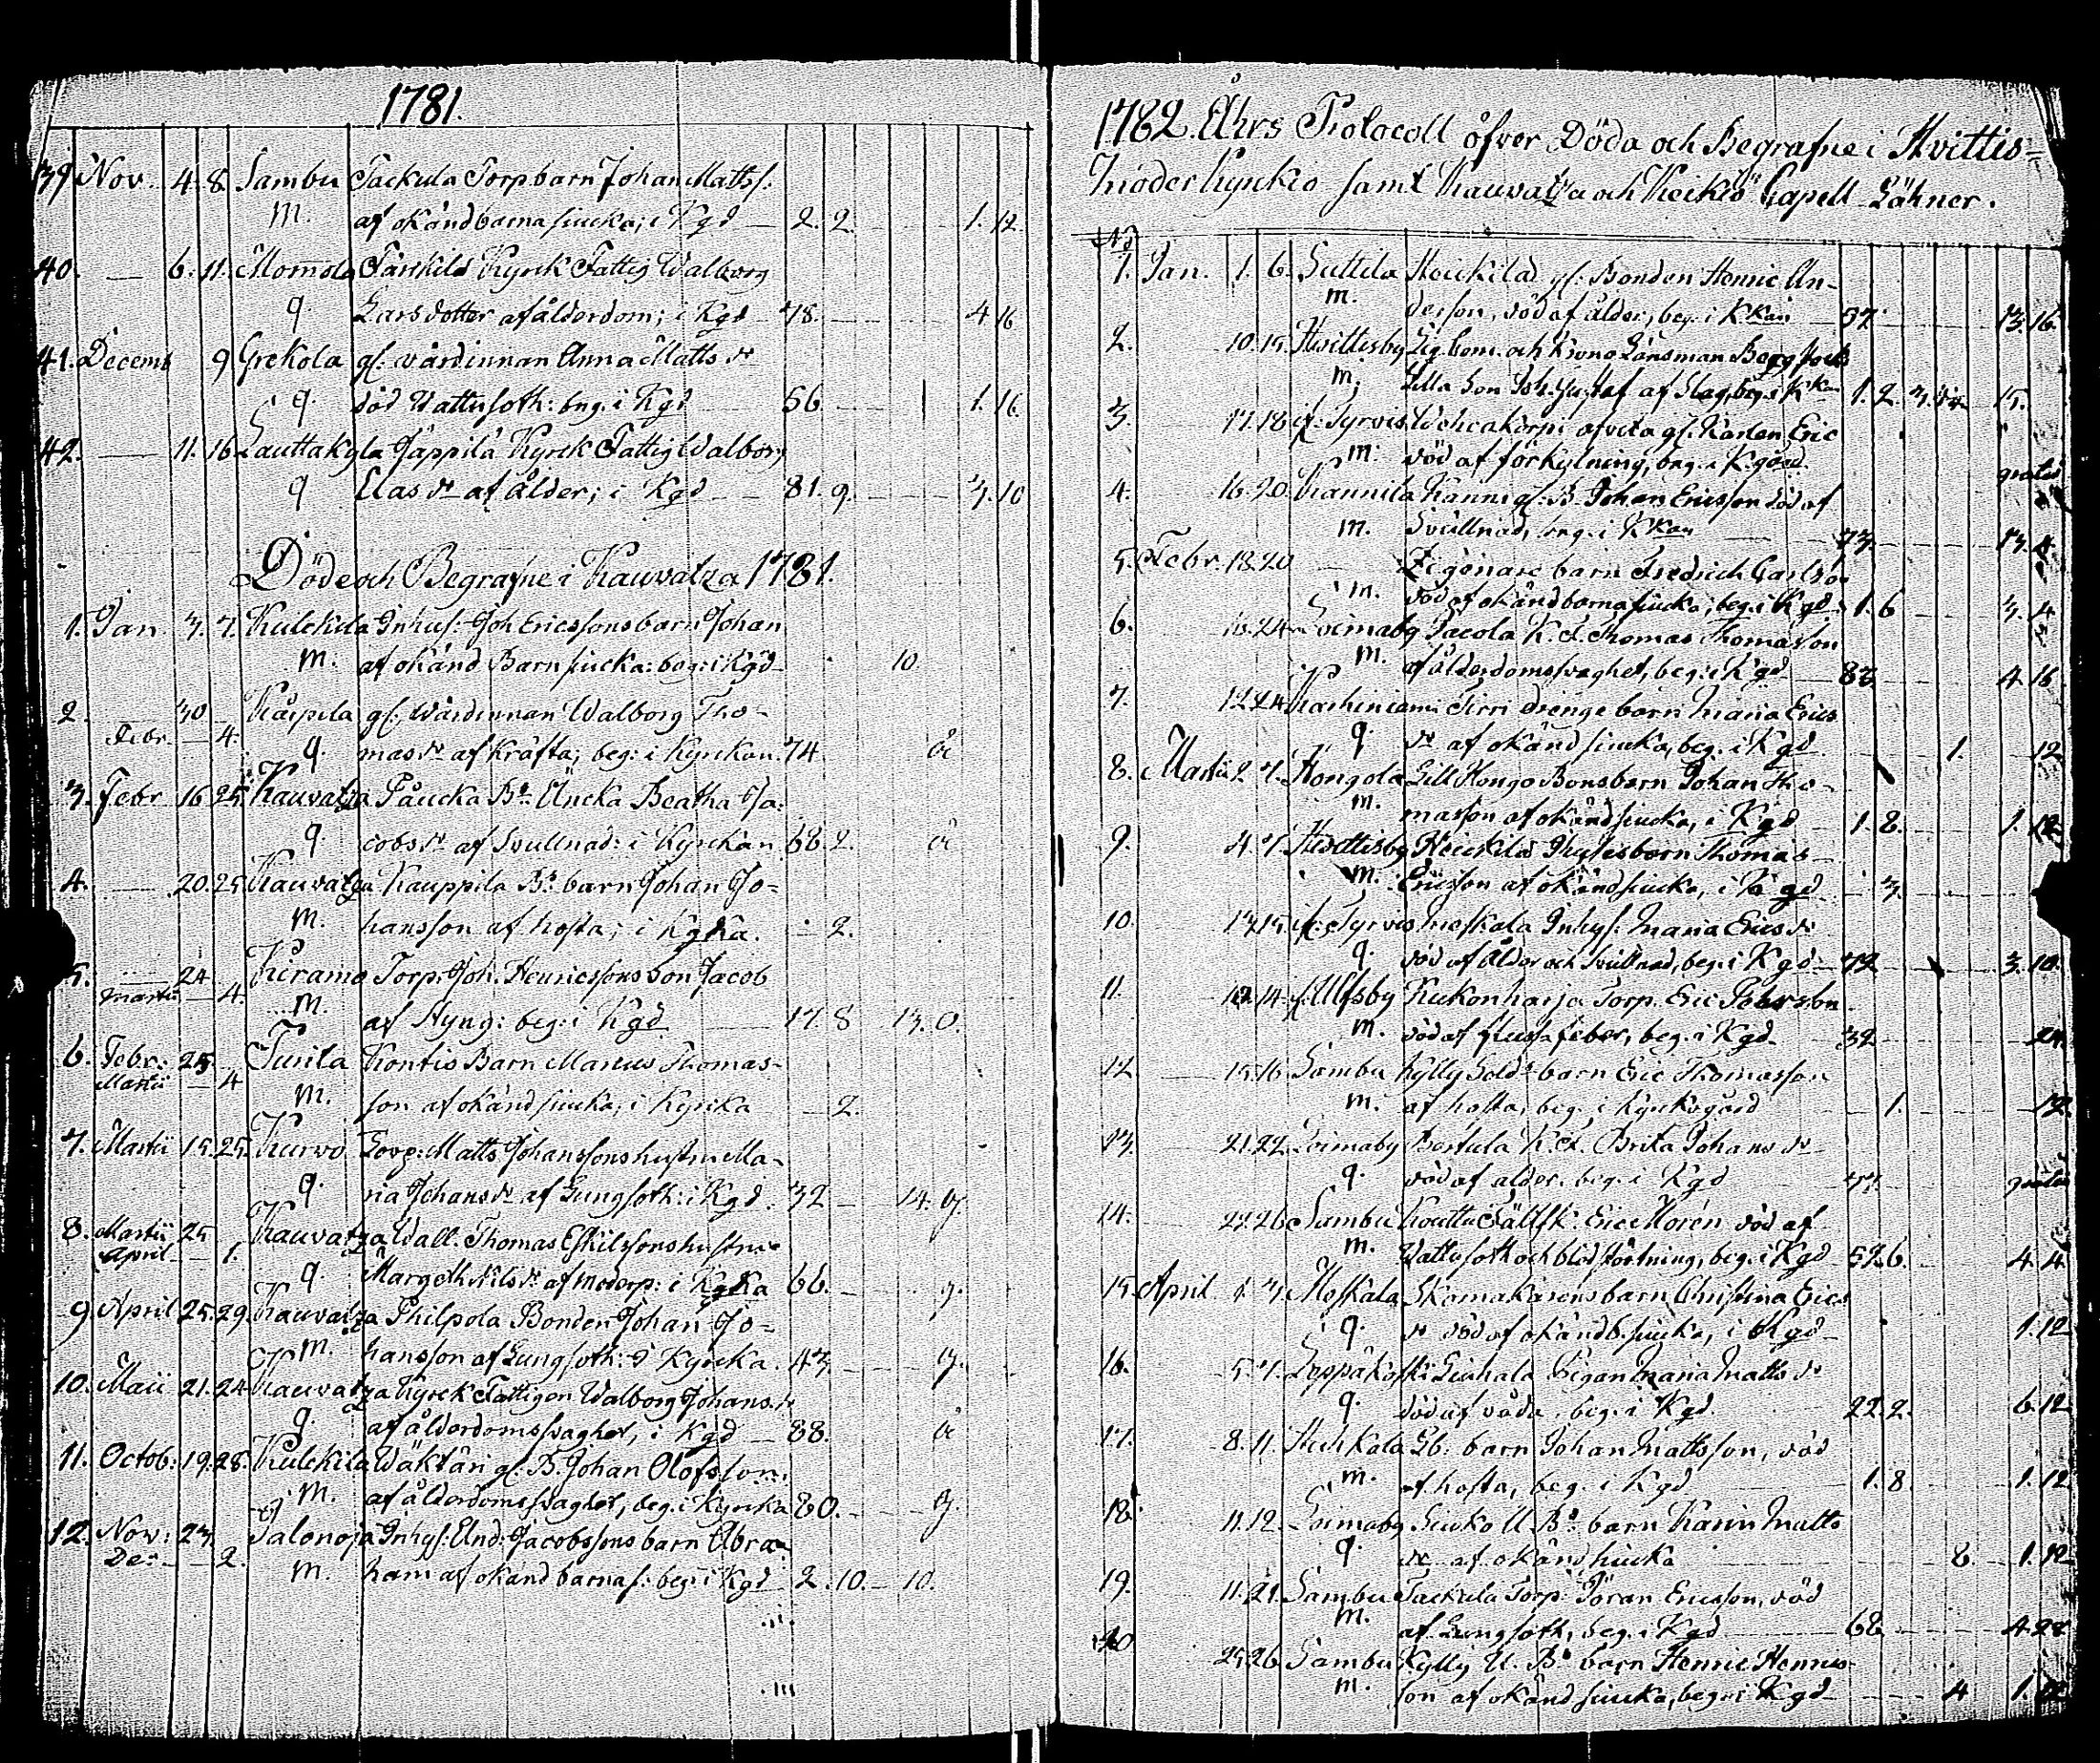 1781.
39 Nov. 4. 8 Sambu Tackula Torpbarn Johan Matts s:
m. af okänd barnasiucka; i Kgd 2. 2. 1. 12.
40. 6. 11. Mommola Kyrck Fattig Walborg
q. Lars dotter af ålderdom; i Kgd 78. 4 16
41. Decemb 9 Grekola gl: wärdinnan Anna Matts dr
q. död Wattusoth: beg. i Kgd 56. 1. 16.
42. 11. 16. Lauttakyla Jäppilä Kyrck Fattig Walborg
q Elas dr af ålder; i Kgd 81. 9. 3. 10
Döde och Begrafne i Kauvatza 1781.
1. Jan. 3. 7. Kulckila Inhys: Joh Ericssons barn Johan
m. af okänd Barnsiucka: beg: i Kgd 10.
2. 30 Karpila gl: Wärdinnan Walborg Tho-
Febr. 4. q. mas dr af kräfta; beg: i Kyrckan. 74
3. Febr 16 25. Kauvatza Påucka Bd Äncka Beatha Ja:
q. cobs dr af Svullnad: i Kyrckan 68. 2.
4. 20. 25. Kauvatza Kauppila Bd barn Johan Jo=
m. hansson af hosta; i Kyrka. 2.
5. 24 Kiramo Torp: Joh. Henricssons son Jacob
Martii 4. m. af Styng: beg: i Kgd 17. 8 13. 0.
6. Febr: 25. Turila Kontis Barn Marcus Thomas-
Martii 4 m. son af okänd siucka; i Kyrcka 2.
7. Martii 15. 25. Kurvo Torp: Matts Johanssons hustru Ma-
q. ria Johans dr af Lungsoth: i Kgd. 32 14.
8. Martii 25 Kauvatza Wall. Thomas Eskilssons hustru
April 1. q. Margeth Nils dr af moderp: i Kyrka 66.
9. April 25. 29. Kauvatza Philpola Bonden Johan Jo=
m. hansson af Lungsoth: i Kyrcka. 43.
10. Maii 21. 24 Kauvatza Kyrck Fattigen Walborg Johans dr
q. af ålderdomssvaghet, i Kgd 88.
11. Octob: 19. 28. Kulckila Wäktäri gl: B. Johan Olofsson.
m. af ålderdomssvaghet, beg. i Kyrcka 80.
12. Nov: 23. Salonoja Inhys: And: Jacobssons barn Abra-
De: 2. m. ham af okänd barnas: beg: i Kgd 2. 10. 10.
1782 Åhrs Protocoll öfver Döda och Begrafne i Hvittis=
moderkyrckio samt Kauvatza och Keikiö Capell Gähner.
No
1. Jan. 1. 6. Suttila Heickilä gl: Bonden Henric An-
m. dersson, död af ålder, beg. i Kkan 57. 13. 16.
2. 10. 15. Hvittisby Krono Länsman Bergstock
m. Lilla Son Joh. Gustaf af Slag, beg. i Kkan 1. 2 3. 15.
3. 17. 18 if: Tyrvis gl. Karlen Eric
m. död af förkylning, beg. i Kgård. gratis
4. 16. 20. Kannila Kanni gl: B. Johan Ericsson död af
m. Svullnad, beg. i Kkan 73. 13.
5. Febr. 18. 20 Zigönare barn Fredrich Carlsson
m. död af okänd barnasiucka, beg. i Kgd 1. 6 3. 4
6. 18. 24 Loimaby Jacola K. F. Thomas Thomasson
m. af ålderdomssvaghet, beg: i Kgd 83 4. 16
7. Karhiniemi Tirri drenge barn Maria Erics
q. dr af okänd siucka, beg. i Kgd 1. 12
8. Martii 2. 7. Hongola Lill Hongo Bonsbarn Johan Tho-
m. masson af okänd siucka, i Kgd 1. 8. 1. 12.
9. 4. 7. Hvittisby Heickilä Inhysesbarn Thomas
m. Ericsson af okänd siucka, i Kgd 3.
10. 13. 15. if: Tyrvis Meskala Inhys: Maria Erics dr
q. död af Ålder och Svullnad, beg. i Kgd 72 3. 10.
11. 12. 14. if: Ulfsby Kukonharja Torp. Eric Petersson
m. död af fluss-feber, beg. i Kgd. 32 24.
12 15. 16 Sambu Kylly Solds barn Eric Thomasson
m. af hosta, beg. i Kyrckogård 1. 12.
13. 21. 22. Loimaby Bertula K. F. Brita Johans dr
q. död af ålder. beg. i Kgd 77. gratis
14. 22. 26 Sambu Fältsk: Eric Morén död af
m. Wattusoth och blodstörtning, beg. i Kgd 52. 6. 4. 4
15. April 1. 3. Moskala Skomakarens barn Christina Erics
q. dr död af okänd b. siucka, i Kgd 1. 12
16. 5. 7. Leppäkoski Pigan Maria Matts dr
q. död af våda, beg. i Kgd. 22. 2. 6. 12
17. 8. 11. Barn Johan Mattsson, död
m. af hosta, beg. i Kgd 1. 8. 1. 12
18. 11. 12. Loimaby U. Bd barn Karin Matts
q. dr af okänd siucka 8. 1. 12
19. 11. 21. Sambu Tackula Torp: Jöran Ericsson, död
m. af Lungsoth, beg. i Kgd 68 4. 28
20 25. 26. Sambu Kylly U. Bd barn Henric Henrics
m. son af okänd siucka, beg: i Kgd 4 1. 12